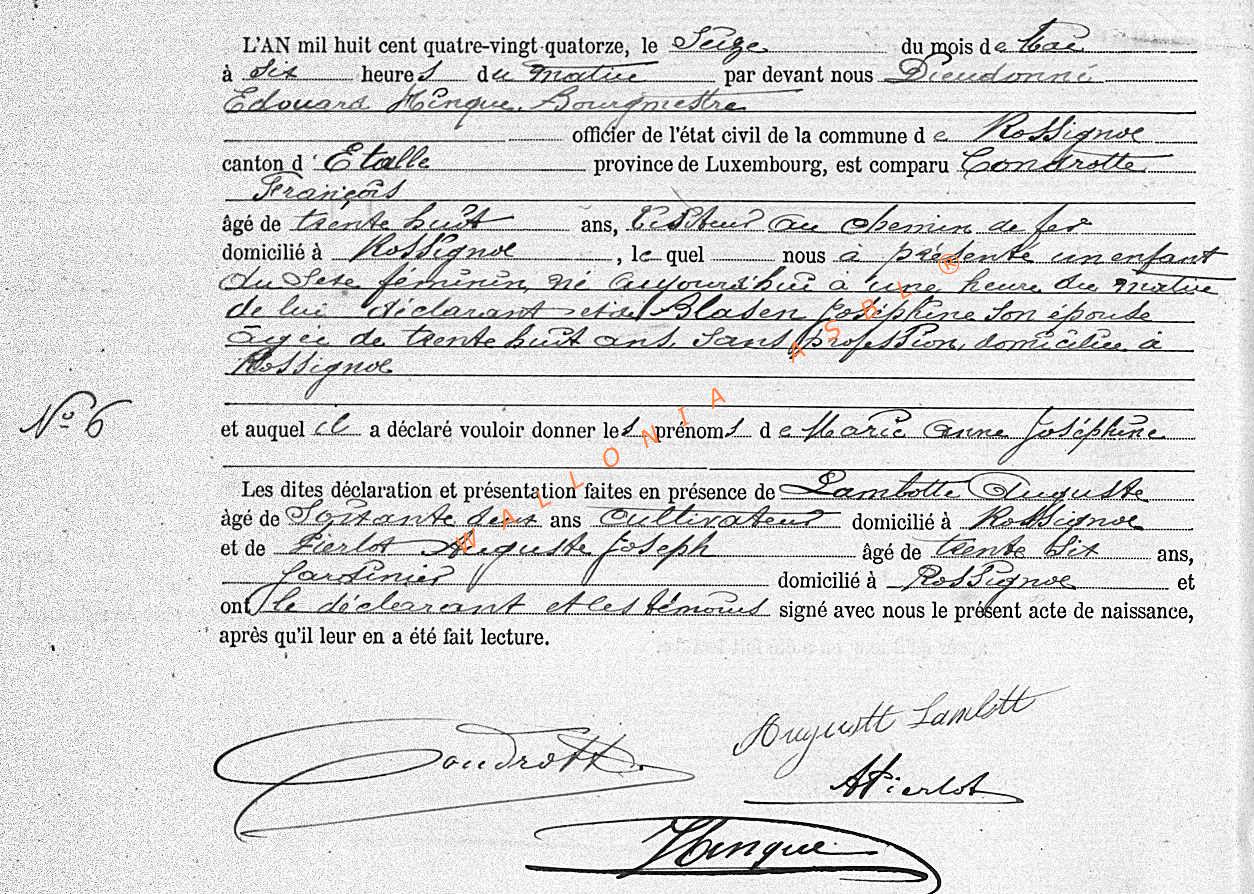 L'AN mil huit cent quatre-vingt-quatorze, le Seize du mois de Mai
à Six heures du matin par devant nous Dieudonné
Edouard Hinque, Bourgmestre
officier de l'état civil de la commune de Rossignol
canton d'Etalle province de Luxembourg, est comparu Condrotte
François
âgé de trente huit ans, Visiteur au chemin de fer
domicilié à Rossignol, le quel nous à présenté un enfant
du Sexe féminin, né aujourd'hui à une heure du matin
de lui déclarant et de Blasen Joséphine Son épouse
âgée de trente huit ans, Sans profession, domiciliée à
Rossignol
No 6
et auquel il a déclaré vouloir donner les prénoms de Marie Anne Joséphine
Les dites déclaration et présentation faites en présence de Lambotte Auguste
âgé de Soixante deux ans cultivateur domicilié à Rossignol
et de Pierlot Auguste Joseph âgé de trente Six ans,
Jardinier domicilié à Rossignol et
ont le déclarant et les témoins signé avec nous le présent acte de naissance,
après qu'il leur en a été fait lecture.
Condrott
August Lambott
APierlot
Hinque
WALLONIA ASBL ®